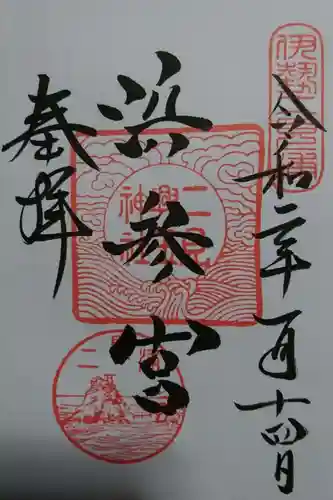 伊勢二見浦
令和二年一月十四日
二見
興玉
神社
浜参宮
奉拝